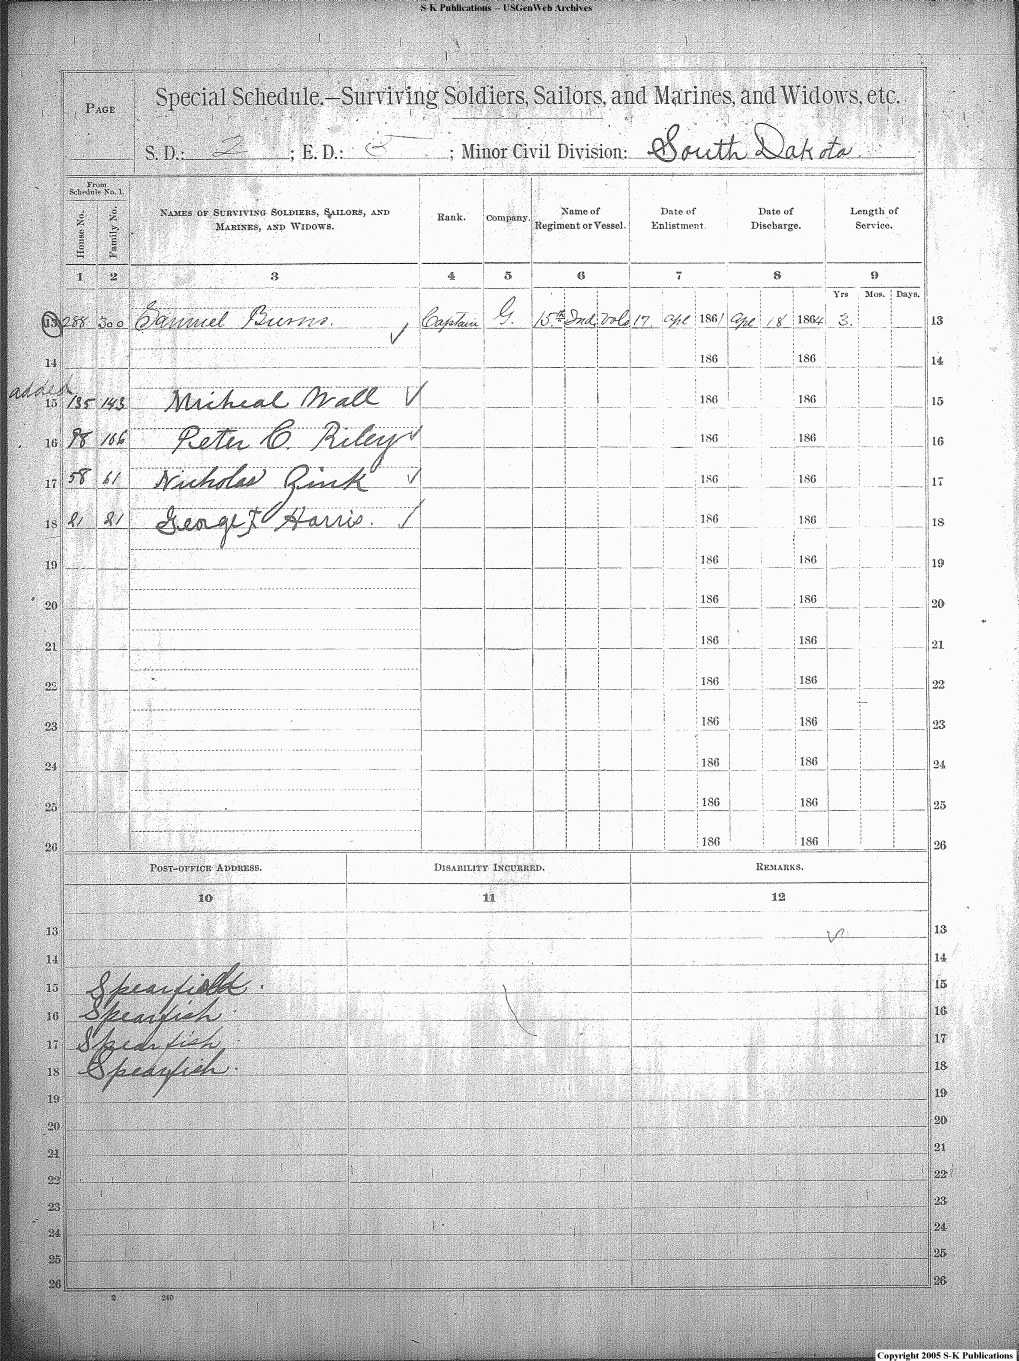 S-K Publications -- USGenWeb Archives
PAGE
Special Schedule.—Surviving Soldiers, Sailors, and Marines, and Widows, etc.
S. D.: 2 ; E. D.: 5 ; Minor Civil Division: South Dakota.
From Schedule No. 1.
House No. Family No. NAMES OF SURVIVING SOLDIERS, SAILORS, AND MARINES, AND WIDOWS. Rank. Company. Name of Regiment or Vessel. Date of Enlistment. Date of Discharge. Length of Service.
1 2 3 4 5 6 7 8 9
Yrs Mos. Days.
13 288 300 Samuel Burns. Captain G. 15th Ind. Vols 17 Apl 1861 Apl 18 1864 3. 13
14 186 186 14
added
15 135 143 Micheal Wall 186 186 15
16 98 106 Peter C. Riley 186 186 16
17 58 61 Nicholas Zink 186 186 17
18 21 21 George F Harris. 186 186 18
19 186 186 19
20 186 186 20
21 186 186 21
22 186 186 22
23 186 186 23
24 186 186 24
25 186 186 25
26 186 186 26
POST-OFFICE ADDRESS. DISABILITY INCURRED. REMARKS.
10 11 12
13 13
14 14
15 Spearfield. 15
16 Spearfish. 16
17 Spearfish 17
18 Spearfish. 18
19 19
20 20
21 21
22 22
23 23
24 24
25 25
26 26
2 240
Copyright 2005 S-K Publications